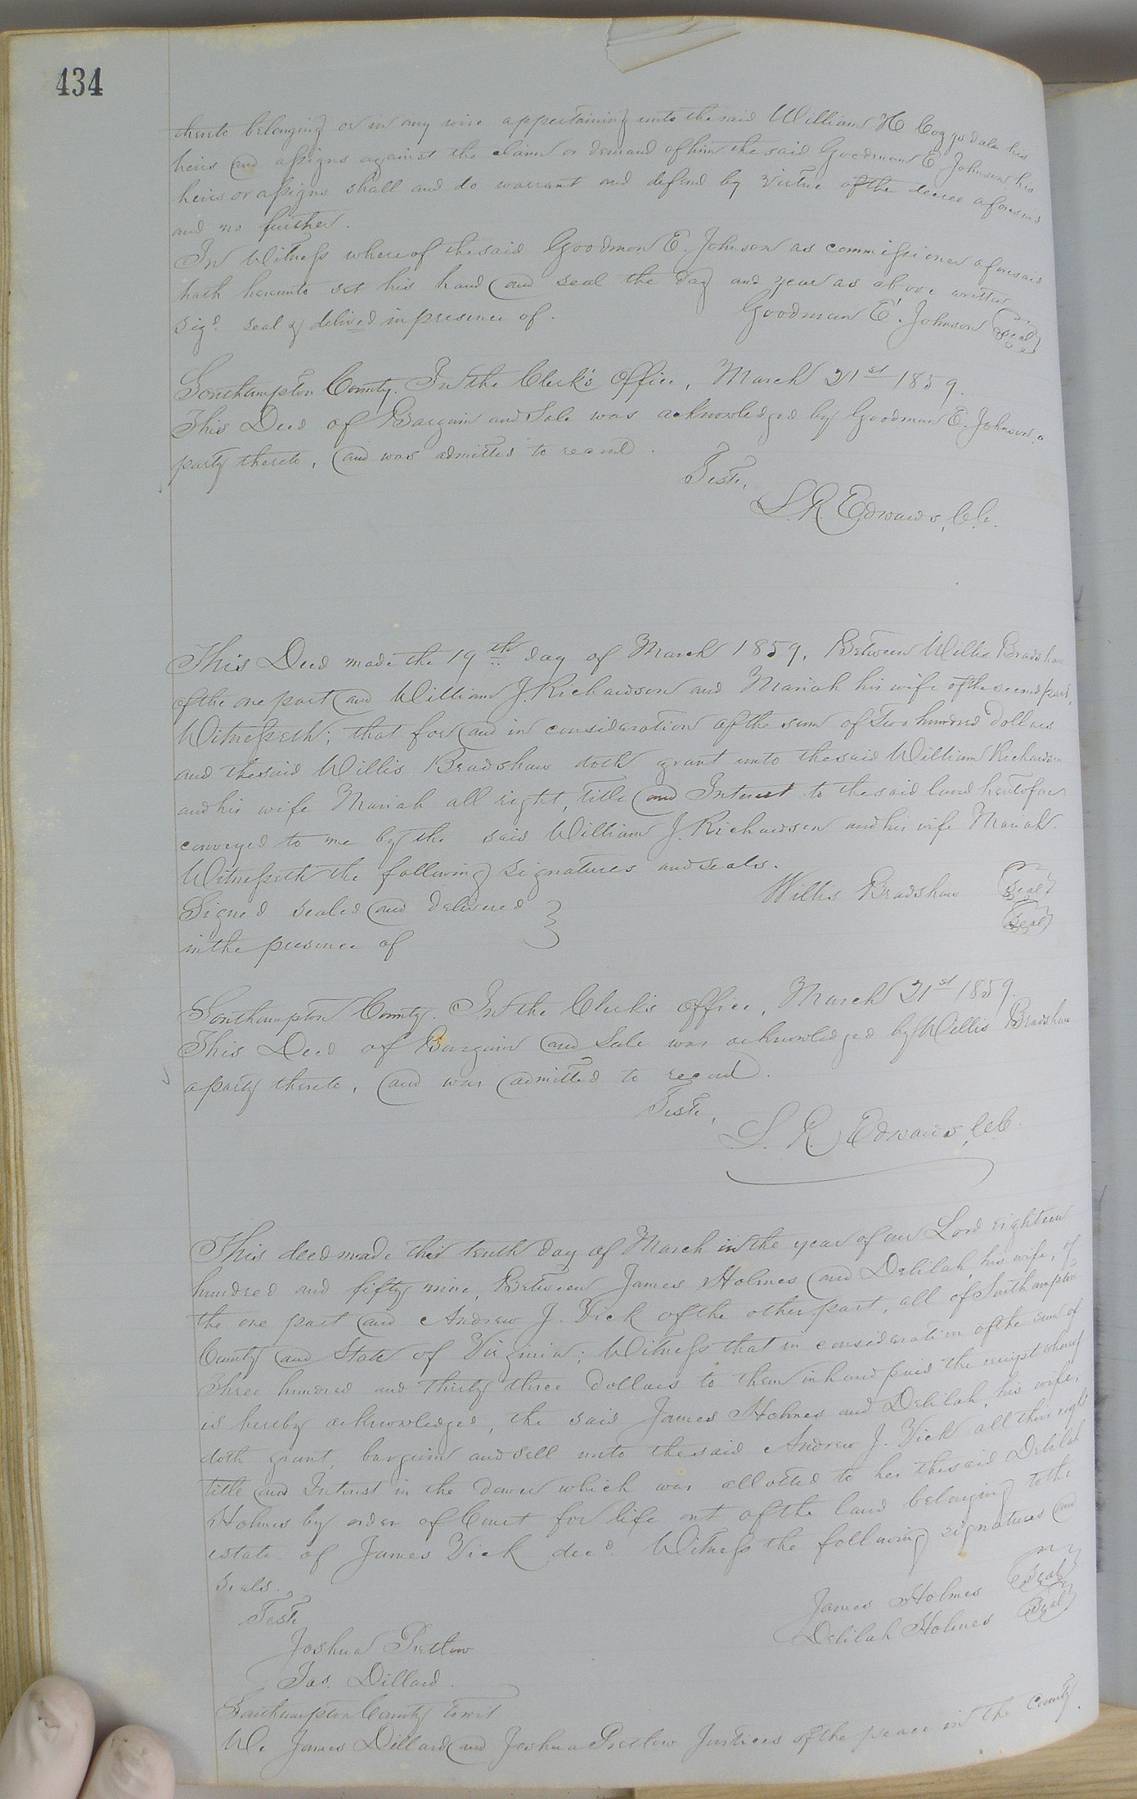 434
thereto belonging or in any wise appertaining unto the said William H Coggsdale his
heirs and assigns against the claim or demand of him the said Goodman E Johnson his
heirs or assigns shall and do warrant and defend by virtue of the decree aforesaid
and no further.
In Witness whereof the said Goodman E. Johnson as commissioner aforesaid
hath hereunto set his hand and seal the day and year as above written
Sigd. seal & delivered in presence of. Goodman E. Johnson (Seal)
Southampton County. In the Clerk's Office, March 21st 1859.
This Deed of Bargain and Sale was acknowledged by Goodman E. Johnson, a
party thereto, and was admitted to record.
Teste,
L. R. Edwards, C.C.
This Deed made the 19th day of March 1859, Between Willis Bradshaw
of the one part and William J. Richardson and Mariah his wife of the second part,
Witnesseth; that for and in consideration of the sum of Two hundred Dollars
and the said Willis Bradshaw doth grant unto the said William Richardson
and his wife Mariah all right, title and Interest to the said land heretofore
conveyed to me by the said William J Richardson and his wife Mariah.
Witnesseth the following signatures and seals.
Willis Bradshaw (Seal)
Signed sealed and delivered } (Seal)
in the presence of
Southampton County. In the Clerk's Office, March 21st 1859.
This Deed of Bargain and Sale was acknowledged by Willis Bradshaw
a party thereto, and was admitted to record.
Teste,
L. R. Edwards, C.C.
This deed made this tenth day of March in the year of our Lord eighteen
hundred and fifty nine, Between James Holmes and Delilah his wife, of
the one part and Andrew J. Vick of the other part, all of Southampton
County and State of Virginia; Witness that in consideration of the sum of
Three hundred and thirty three dollars to them in hand paid the receipt whereof
is hereby acknowledged, the said James Holmes and Delilah, his wife,
doth grant, bargain and sell unto the said Andrew J. Vick all their right
title and Interest in the dower which was allotted to her the said Delilah
Holmes by order of Court for life out of the land belonging to the
estate of James Vick decd. Witness the following signatures and
seals.
Teste James Holmes (Seal)
Joshua Pretlow Delilah Holmes (Seal)
Jas. Dillard.
Southampton County to wit
We James Dillard and Joshua Pretlow Justices of the peace in the County.